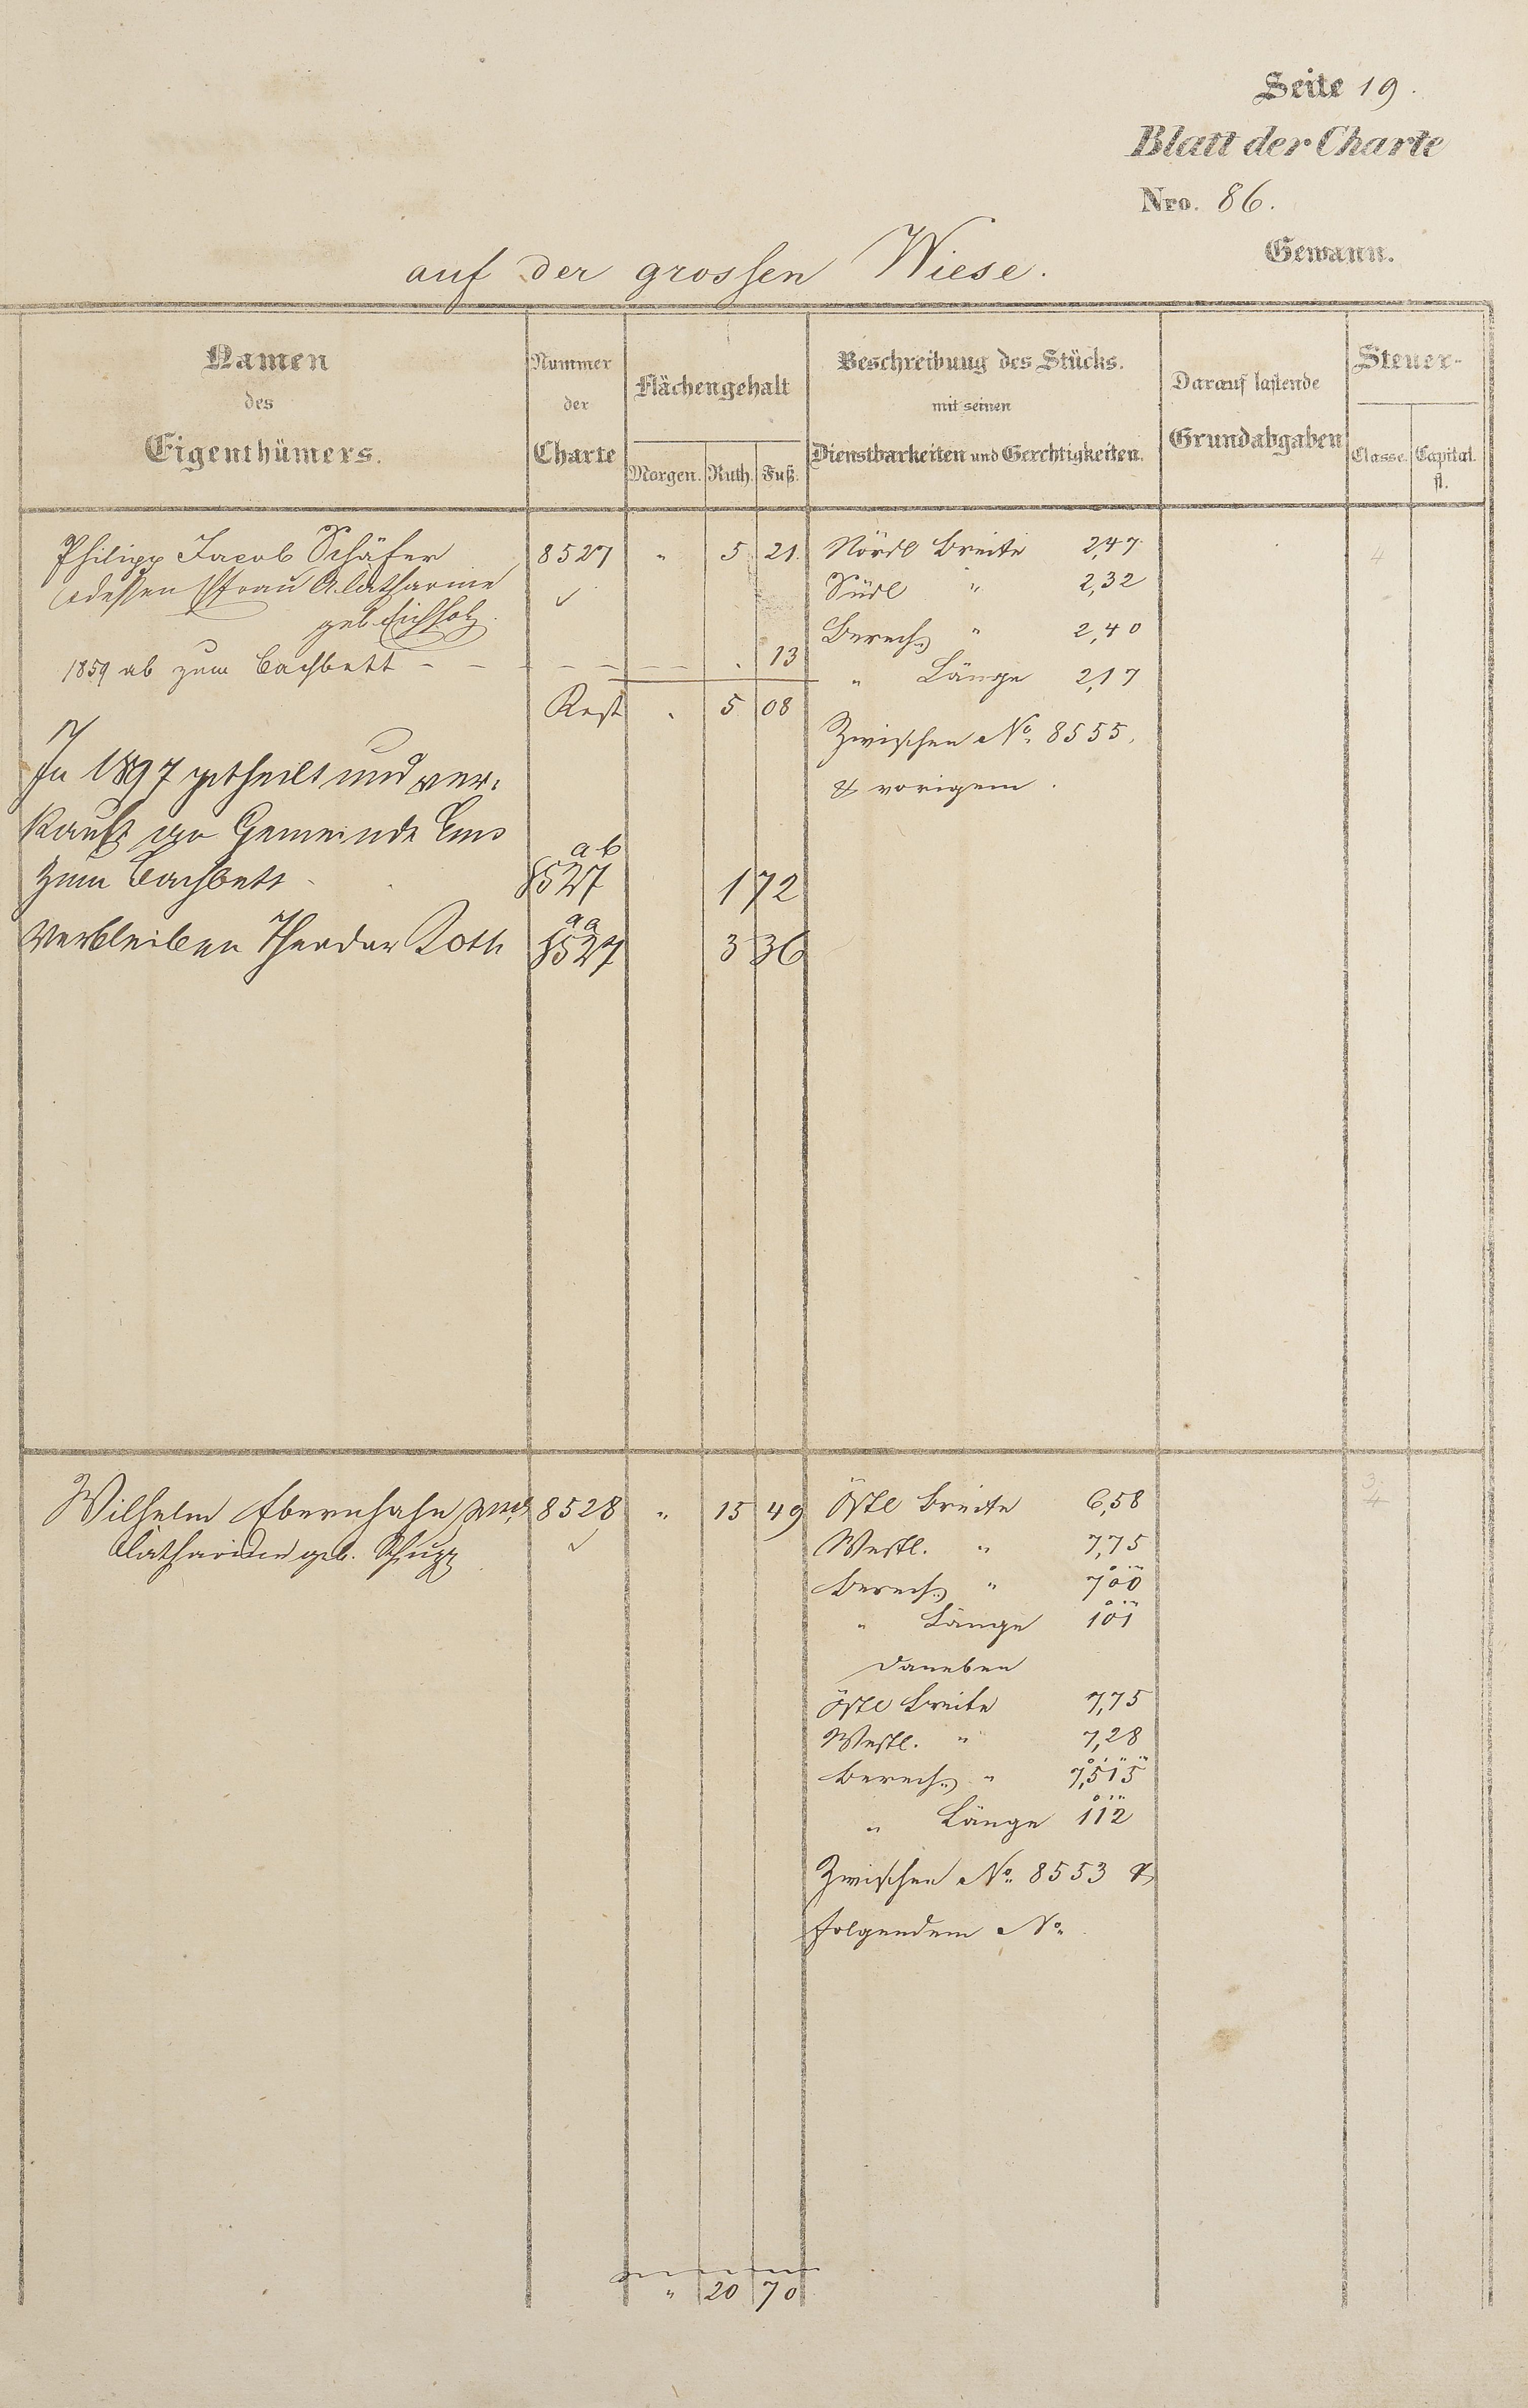 Seite 19.
Blatt der Charte
Nro. 86.
Gewann.
auf der grossen Wiese.
Namen des Eigenthümers.
Nummer der Charte
Flächengehalt
Morgen. Ruth. Fuß.
Beschreibung des Stücks.
mit seinen
Dienstbarkeiten und Gerechtigkeiten.
Darauf lastende
Grundabgaben
Steuer-
Classe. Capital.
fl.
Philipp Jacob Schäfer 8527 " 5 21. Nördl Breite 2,47
dessen Frau Catharine ✓ Südl " 2,32
geb. Eichholz. Berech. " 2,40
1859 ab zum Bachbett - - - - - - - . 13 " Länge 2,17
Rest . 5 08
Zwischen No. 8555,
& vorigem.
In 1897 getheilt und ver-
kauft an Gemeinde Ems
zum Bachbett 8527 ab 172
Verbleiben Theodor Roth 8527 aa 3 36
Wilhelm Ebernhahn 8528 " 15 49 Östl Breite 6,58
Catharine geb. Schupp ✓ Westl. " 7,75
Berech. " 700
" Länge 101
Daneben
Östl Breite 7,75
Westl. " 7,28
Berech. " 7,515
" Länge 112
Zwischen No. 8553 &
folgendem No.
4
3.
4
" 20 70